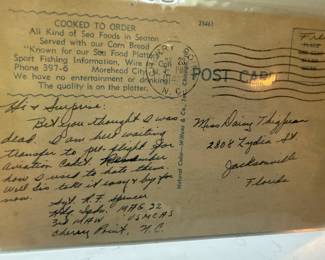 COOKED TO ORDER
All Kind of Sea Foods in Season
Served with our Corn Bread
"Known for our Sea Food Platter"
Sport Fishing Information, Wire or Call
Phone 397-6 Morehead City, N. C.
We have no entertainment or drinking
The quality is on the platter.
25461
CHERRY POINT
N.C.
POST CARD
Free
Hi & Surprise:
Bet you thought I was
dead. Am here waiting
transfer to pre-flight for
Aviation Cadet. Remember
how I used to hate them.
Well sis take it easy & by for
now.
Sgt. R. F. Spencer
Hdq. Sqdn. MAG 22
3rd MAW USMCAS
Cherry Point, N. C.
Miss Daisy Thigpen
2808 Lydia St
Jacksonville
Florida